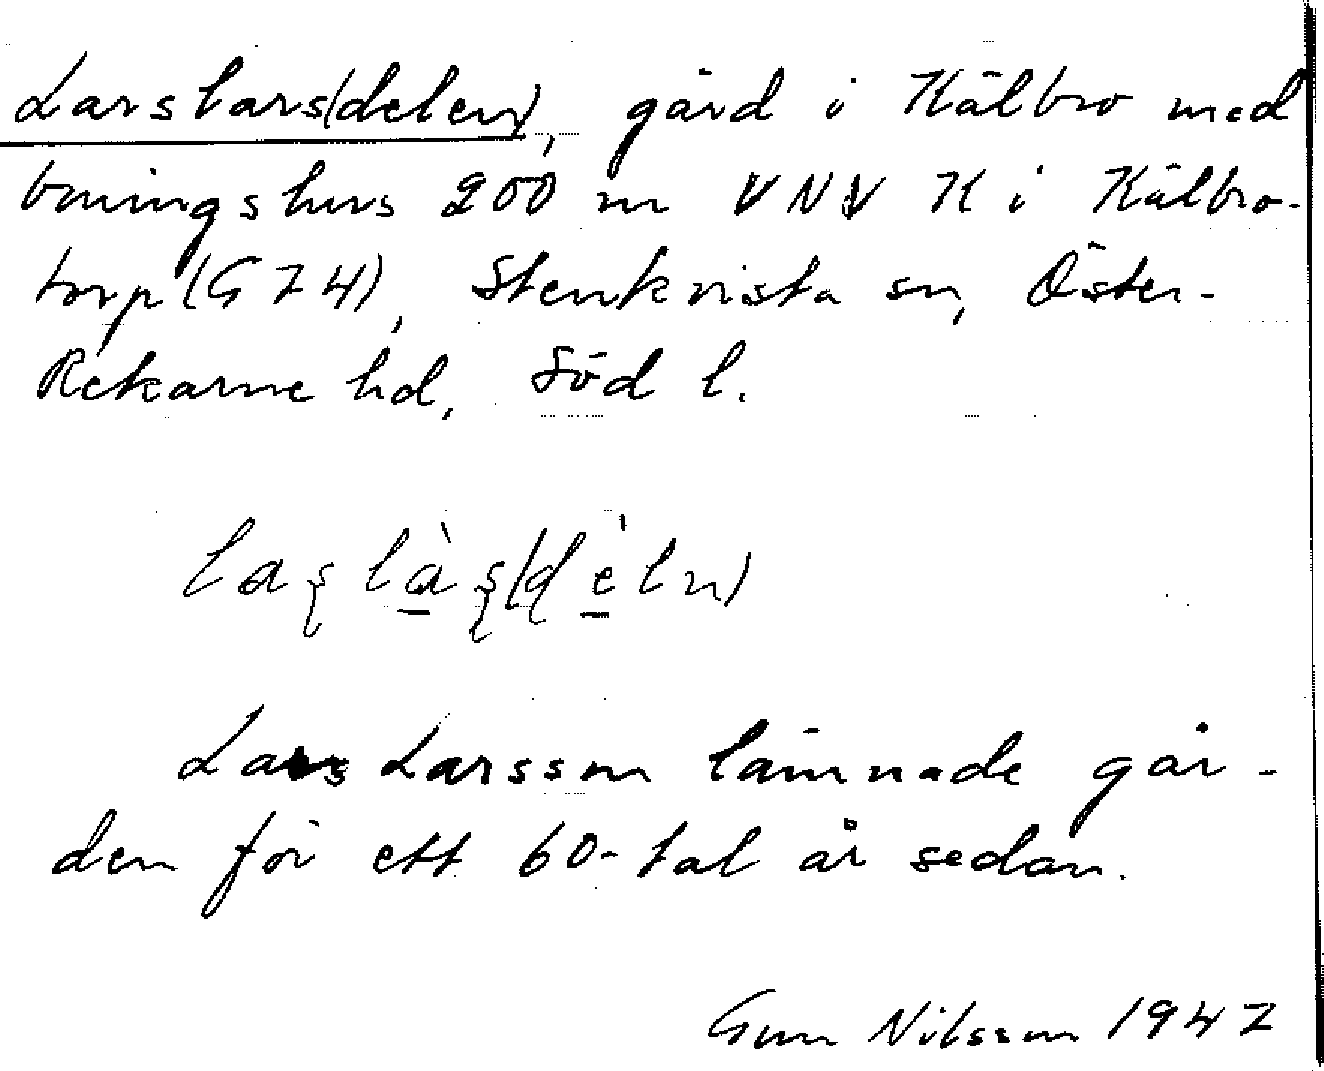 Larslars(delen), gård i Kälbro med
boningshus 200 m VNV K i Kälbro-
torp (G 74), Stenkvista sn, Öster-
Rekarne hd, Söd l.
laşlàş(dèln)
Lars Larsson lämnade går-
den för ett 60-tal år sedan.
Gun Nilsson 1947